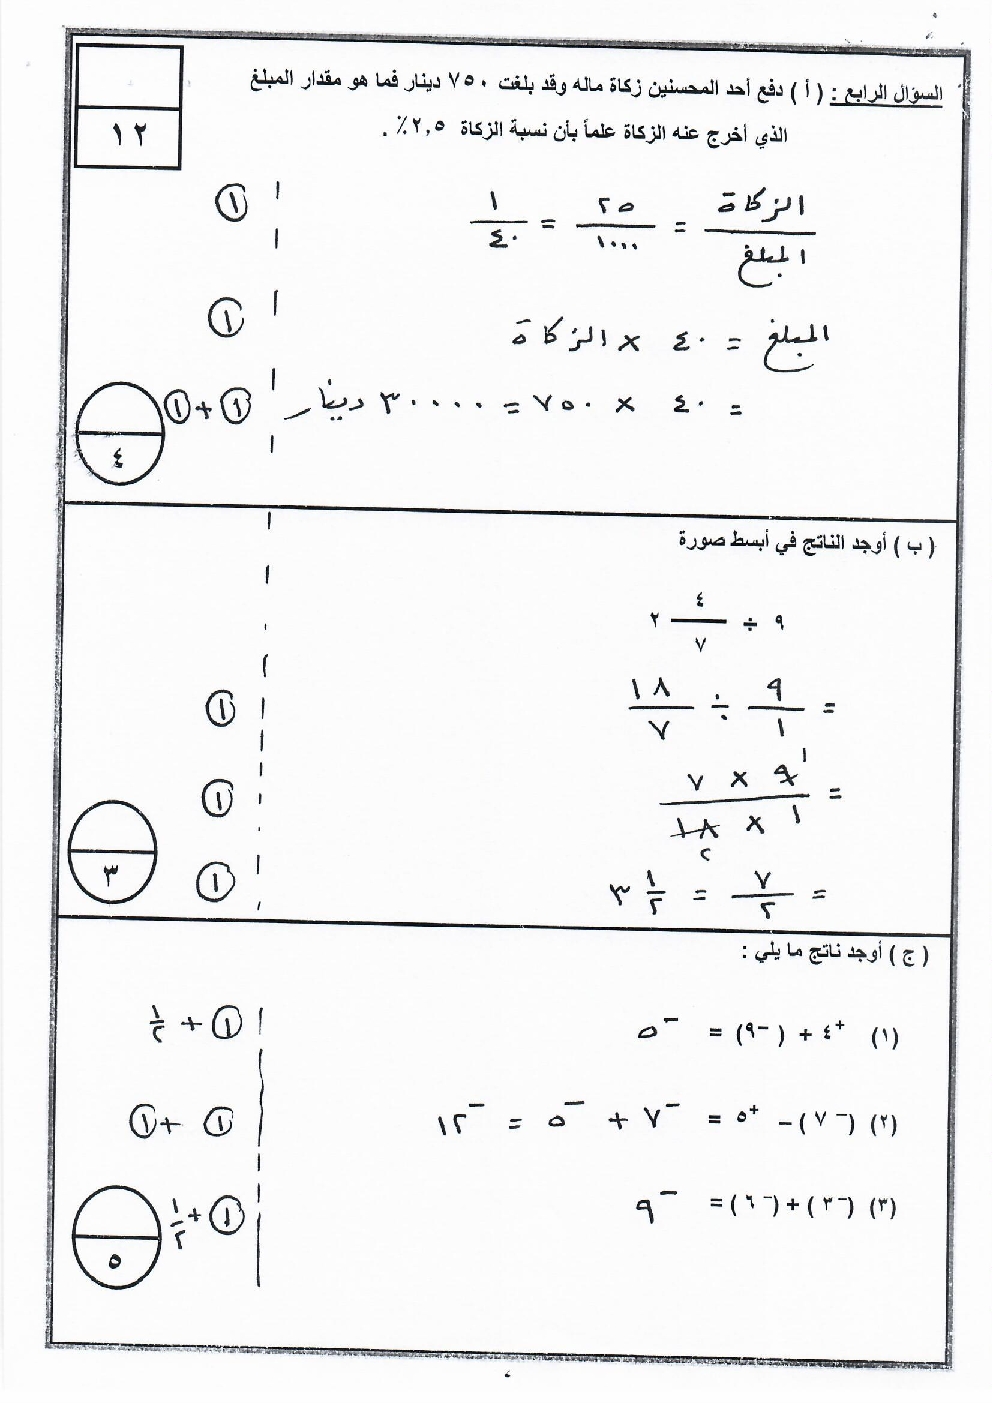 السؤال الرابع : ( أ ) دفع أحد المحسنين زكاة ماله وقد بلغت ٧٥٠ دينار فما هو مقدار المبلغ
الذي أخرج عنه الزكاة علماً بأن نسبة الزكاة ٢,٥٪ .
١٢
الزكاة / المبلغ = ٢٥ / ١٠٠٠ = ١ / ٤٠ ١
المبلغ = ٤٠ × الزكاة ١
= ٤٠ × ٧٥٠ = ٣٠٠٠٠ دينار ١ + ١
٤
( ب ) أوجد الناتج في أبسط صورة
٩ ÷ ٤ / ٧ ٢
= ٩ / ١ ÷ ١٨ / ٧ ١
= ٩ ١ × ٧ / ١ × ١٨ ٢ ١
= ٧ / ٢ = ١ / ٢ ٣ ١
٣
( ج ) أوجد ناتج ما يلي :
(١) +٤ + (−٩) = −٥ ١ + ١ / ٢
(٢) (−٧) − +٥ = −٧ + −٥ = −١٢ ١ + ١
(٣) (−٣) + (−٦) = −٩ ١ + ١ / ٢
٥